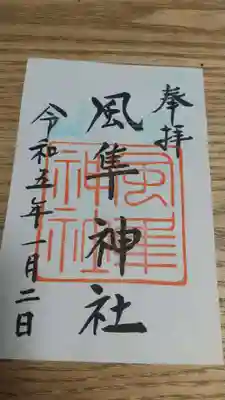 奉拝
風隼神社
令和五年一月二日
風隼神社